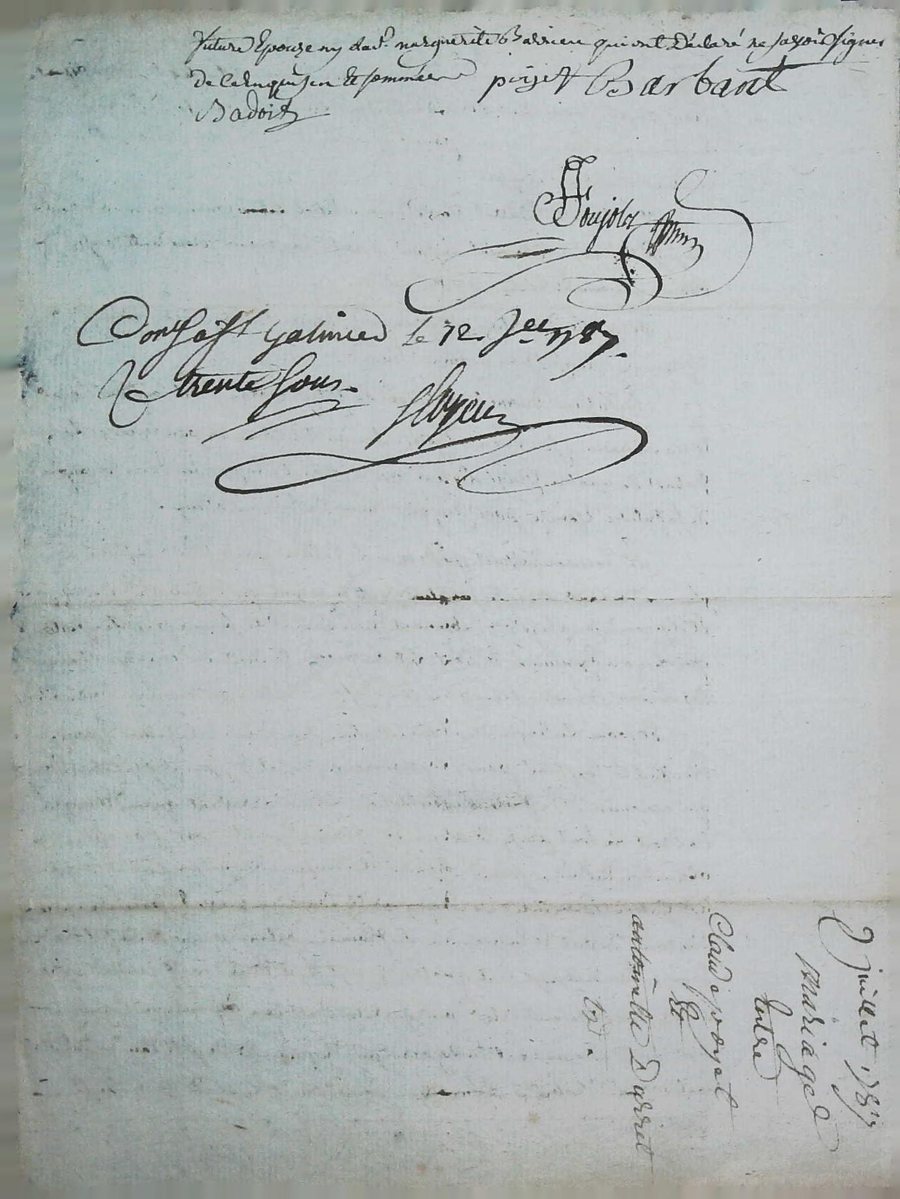 future Epouze ny lad.e marguerite Barrieu qui ont Déclaré ne savoir signer
De ce Enquis en Et sommées poyet Barbant
Badoit
Poujols
Con.lé à St galmier le 12. J.et 1787.
R trente sous.
7 juillet 1787
mariage
Entre
Claude poyet
Et
antoinette Durret